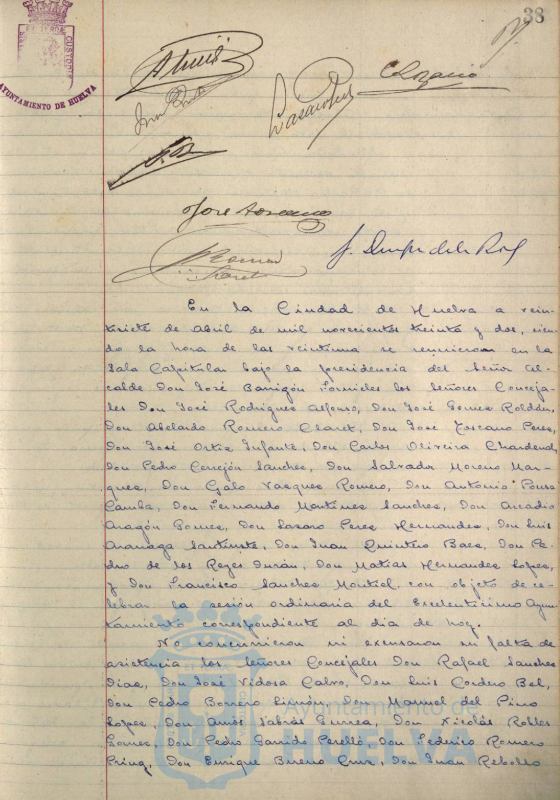 38
AYUNTAMIENTO DE HUELVA
José Toscano
En la Ciudad de Huelva a vein-
tisiete de Abril de mil novecientos treinta y dos, sien-
do la hora de las veintiuna se reunieron en la
Sala Capitular bajo la presidencia del Señor Al-
calde Don José Barrigón Fornieles los Señores Conceja-
les Don José Rodríguez Alfonso, Don José Gomez Roldán,
Don Abelardo Romero Claret, Don José Toscano Perez,
Don José Ortiz Infante, Don Carlos Oliveira Chardenal,
Don Pedro Cerejón Sanchez, Don Salvador Moreno Mar-
quez, Don Galo Vazquez Romero, Don Antonio Pousa
Camba, Don Fernando Martinez Sanchez, Don Arcadio
Aragón Gomez, Don Lazaro Perez Hernandez, Don Luis
Aranaga Santuste, Don Juan Quintero Baez, Don Pe-
dro de los Reyes Durán, Don Matías Hernandez Lopez,
y Don Francisco Sanchez Montiel, con objeto de ce-
lebrar la sesión ordinaria del Excelentísimo Ayun-
tamiento correspondiente al dia de hoy.
No concurrieron ni excusaron su falta de
asistencia los Señores Concejales Don Rafael Sanchez
Diaz, Don José Vidosa Calvo, Don Luis Cordero Bel,
Don Pedro Borrero Limón, Don Manuel del Pino
Lopez, Don Amós Sabrás Gurrea, Don Nicolás Robles
Gomez, Don Pedro Garrido Perelló, Don Federico Romero
Prinz, Don Enrique Bueno Cruz, Don Juan Rebollo
Ayuntamiento de
HUELVA